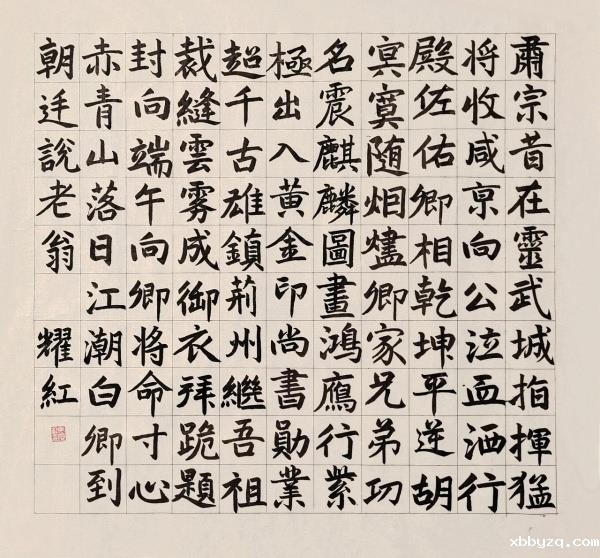 肅宗昔在靈武城指揮猛
将收咸亰向公泣血洒行
殿佐佑卿相乾坤平逆胡
冥寞随烟燼卿家兄弟功
名震麒麟圖畫鴻鴈行紫
極出入黄金印尚書勛業
超千古雄鎮荊州繼吾祖
裁縫雲雾成御衣拜跪題
封向端午向卿将命寸心
赤青山落日江潮白卿到
朝廷說老翁 耀紅
xbbyzq.com